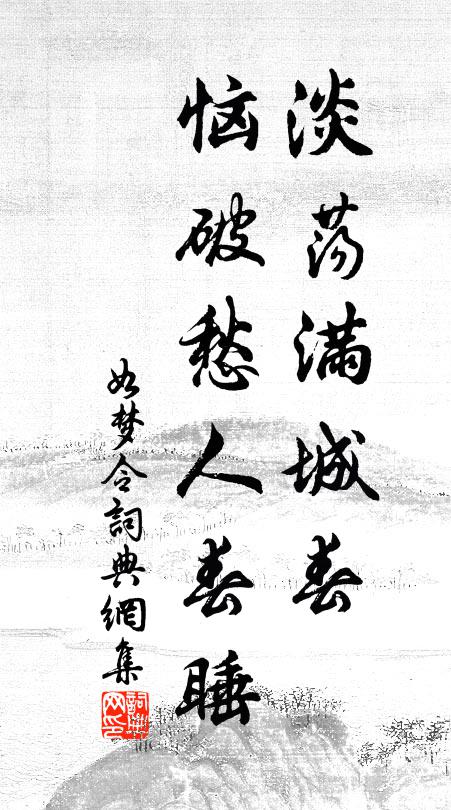 淡荡满城春
恼破愁人春睡
如梦令詞典網集